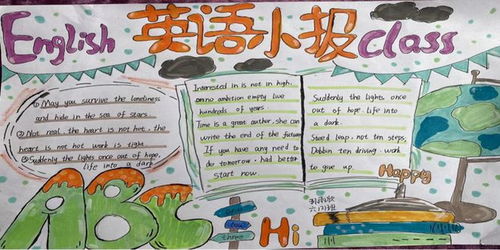 English 英语小报 class
① May you survive the loneliness
and hide in the sea of stars.
② Not real, the heart is not hot, the
heart is not hot work is
③ Suddenly the lights once out of hope,
life into a dark
Interested in is not in high,
no ambition empty live
hundreds of years.
Time is a great author, she can
write the end of the future
If you have any need to
do tomorrow. had better
start now
Suddenly the lights once
out of hope life into
a dark.
Steed leap. not ten steps,
Dobbin ten driving. work
to give up.
Happy
ABC
Hi